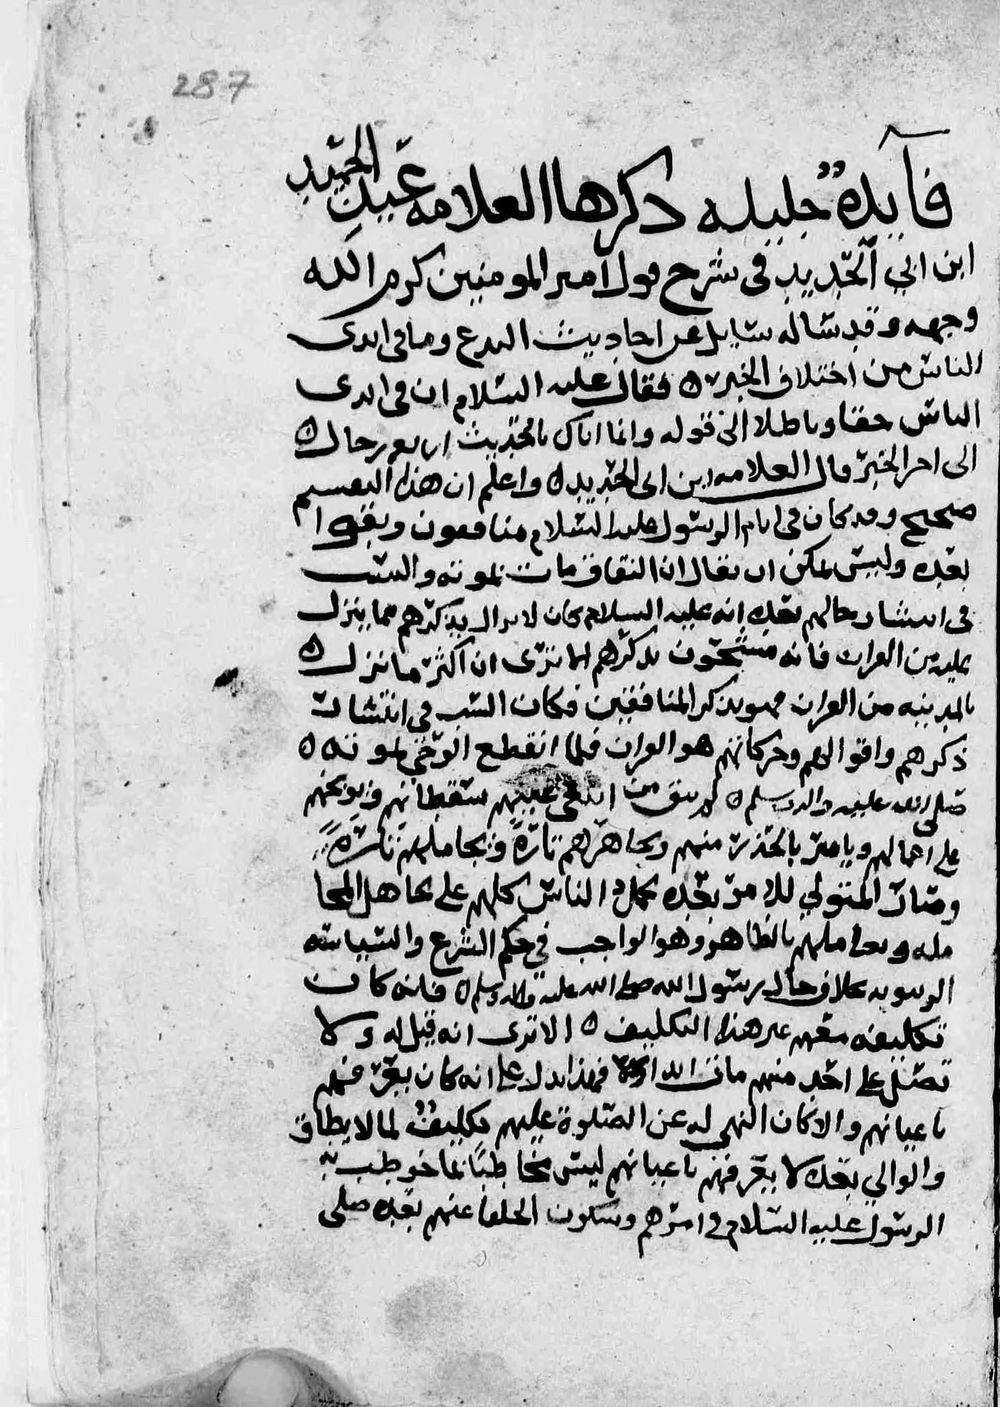 287
فآيدة جليله ذكرها العلامه عبد الحميد
ابن ابي الحديد في شرح قول امير المومنين كرم الله
وجهه وقد ساله سايل عن احاديث البدع وما في ايدي
الناس من اختلاف الخبر ه فقال عليه السلام ان في ايدي
الناس حقا وباطلا الى قوله وانما اتاك بالحديث اربعه رجال ه
الى اخر الخبر قال العلامه ابن ابي الحديد ه واعلم ان هذا التقسيم
صحيح وقد كان في ايام الرسول عليه السلام منافقون وبقوا
بعده وليس يمكن ان يقال ان النفاق مات بموته والسبب
في استتار حالهم بعده انه عليه السلام كان لا يزال يذكرهم بما ينزل
عليه من القران فانه مشحون بذكرهم الا ترى ان اكثر ما نزل ه
بالمدينه من القران مملو بذكر المنافقين فكان السبب في انتشار
ذكرهم واقوالهم وحركاتهم هو القران فلما انقطع الوحي بموته ه
صلى الله عليه واله وسلم ه لم يبق من ينعي عليهم سقطاتهم ويوبخهم
على اعمالهم ويامر بالحذر منهم ويجاهرهم تارةً ويجاملهم تارةً
وصار المتولي للامر بعده يحمل الناس كلهم على كاهل المجا
مله ويعاملهم بالظاهر وهو الواجب في حكم الشرع والسياسه
الدنيويه بخلاف حال رسول الله صلى الله عليه واله وسلم ه فانه كان
تكليفه معهم غير هذا التكليف ه الا ترى انه قيل له ولا
تصل على احد منهم مات ابدا فهذا يدل على انه كان يعرفهم
باعيانهم والا كان النهي له عن الصلوة عليهم تكليفٌ لما لا يطاق
والوالي بعده لا يعرفهم باعيانهم ليس مخاطبًا بما خوطب به
الرسول عليه السلام في امرهم وسكون الخلفا عنهم بعده صلى